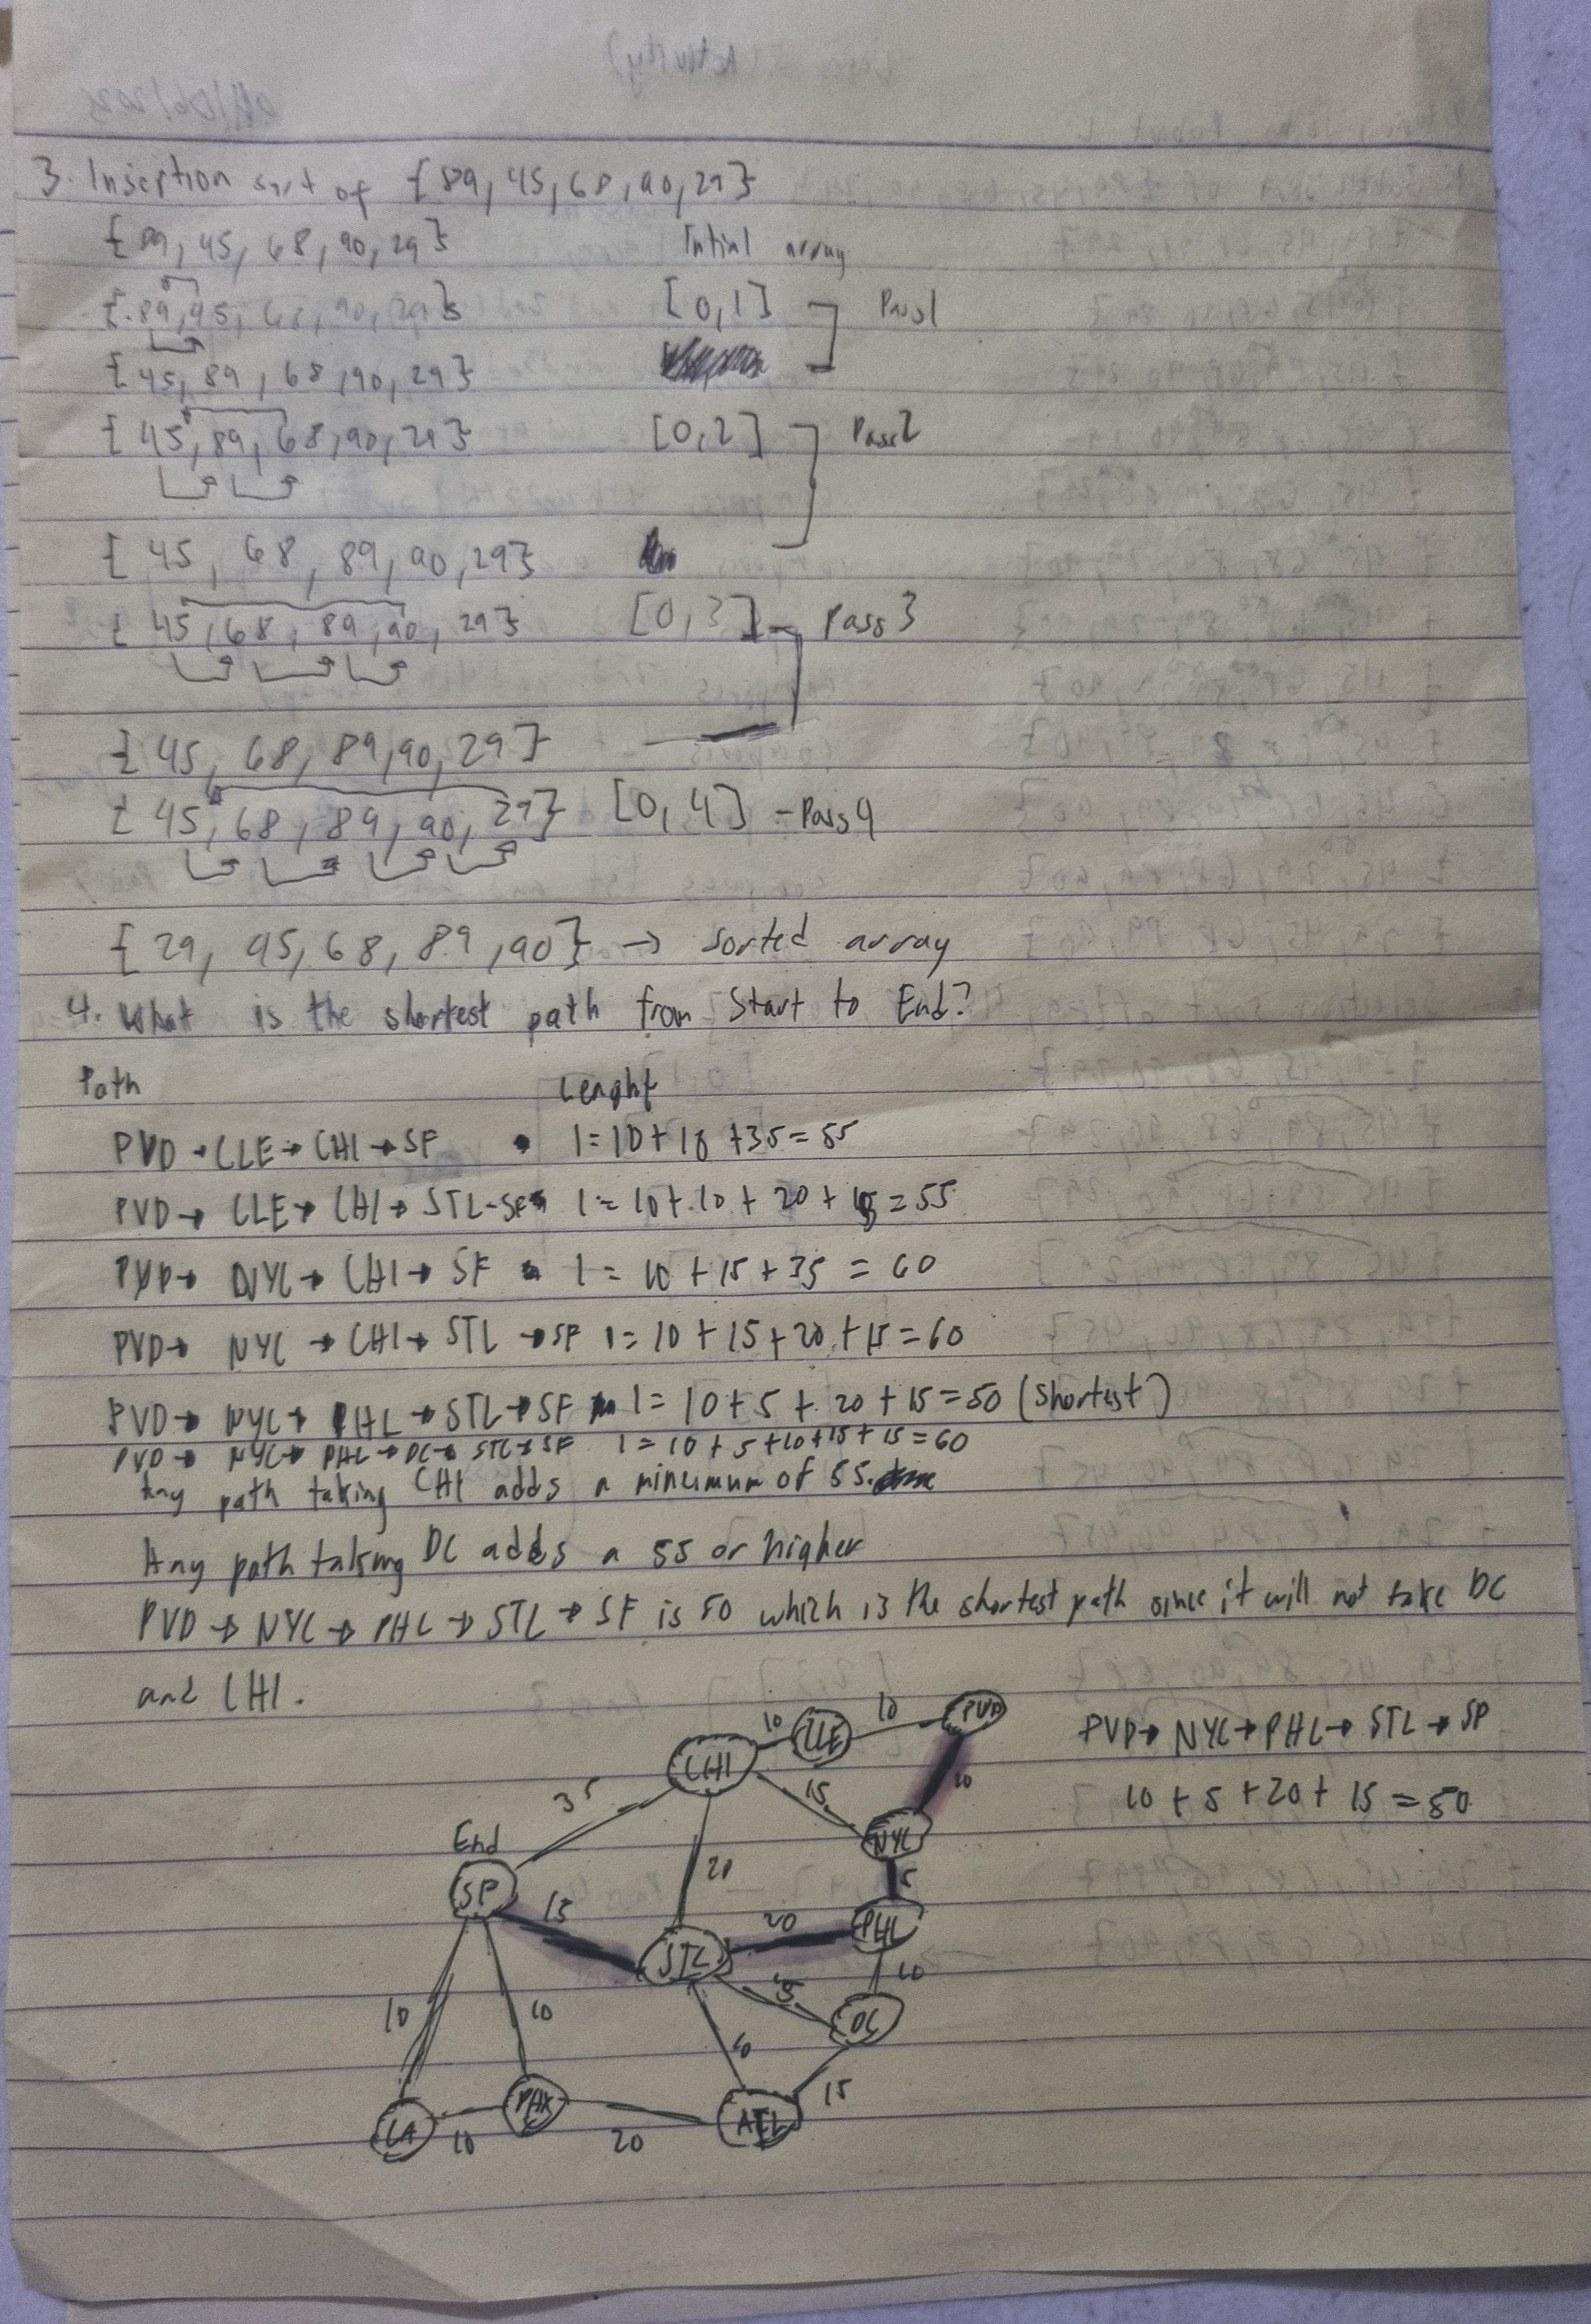 3. Insertion sort of {89, 45, 68, 90, 29}
{89, 45, 68, 90, 29} Intial array
{89, 45, 68, 90, 29} [0,1] Pass1
{45, 89, 68, 90, 29}
{45, 89, 68, 90, 29} [0,2] Pass2
{45, 68, 89, 90, 29}
{45, 68, 89, 90, 29} [0,3] Pass 3
{45, 68, 89, 90, 29}
{45, 68, 89, 90, 29} [0,4] - Pass 4
{29, 45, 68, 89, 90} → sorted array
4. What is the shortest path from Start to End?
Path Lenght
PVD → CLE → CHI → SF l = 10 + 10 + 35 = 55
PVD → CLE → CHI → STL - SF l = 10 + 10 + 20 + 15 = 55
PVD → NYC → CHI → SF l = 10 + 15 + 35 = 60
PVD → NYC → CHI → STL → SF l = 10 + 15 + 20 + 15 = 60
PVD → NYC → PHL → STL → SF l = 10 + 5 + 20 + 15 = 50 (shortest)
PVD → NYC → PHL → DC → STL → SF l = 10 + 5 + 10 + 15 + 15 = 60
Any path taking CHI adds a minimum of 55.
Any path taking DC adds a 55 or higher
PVD → NYC → PHL → STL → SF is 50 which is the shortest path since it will not take DC
and CHI.
PVD → NYC → PHL → STL → SF
10 + 5 + 20 + 15 = 50
10 CLE 10 PVD
CHI
35 15 10
End NYC
20 5
SF 15 20 PHL
STL 10
15 DC
10 10
15
LA 10 PHX 20 ATL